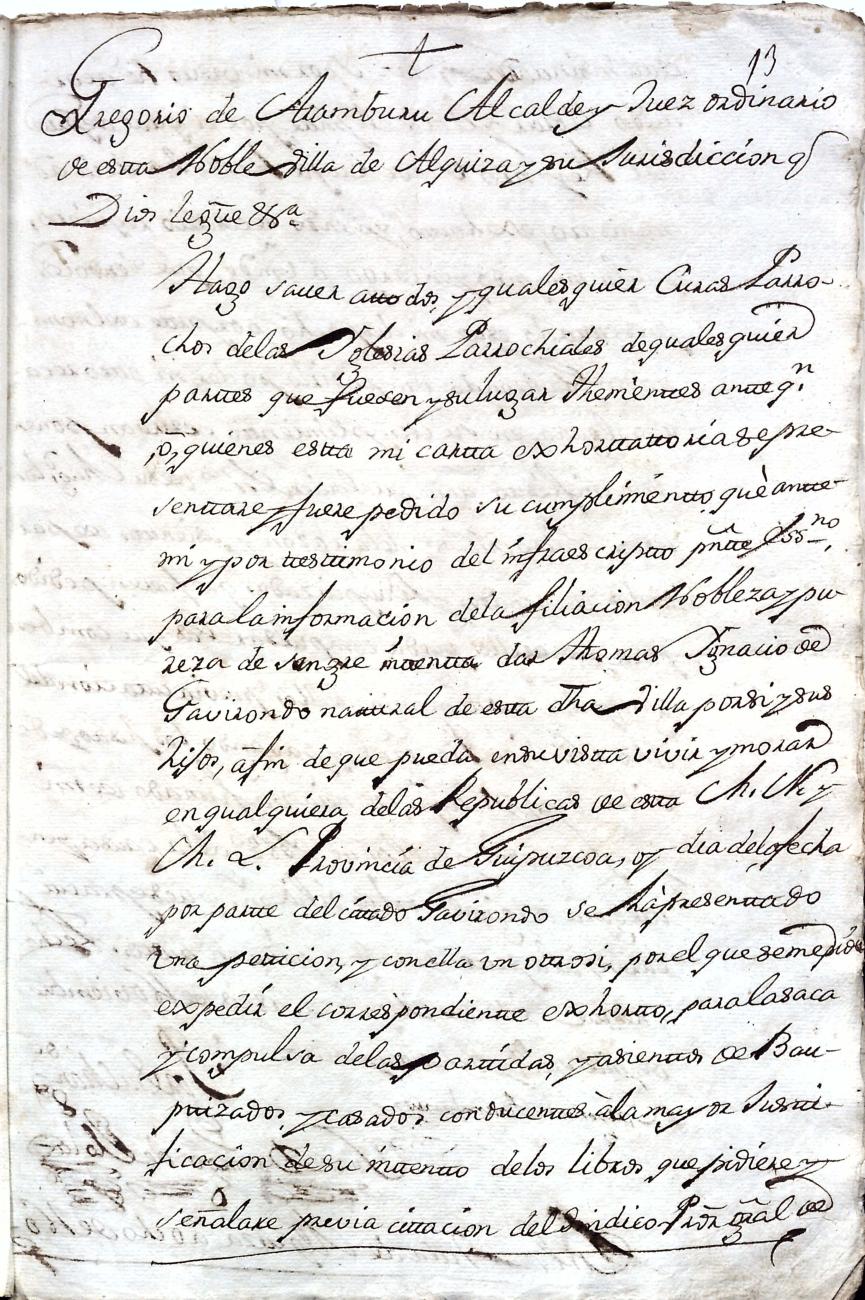 13
Gregorio de Aramburu Alcalde y Juez ordinario
de estta Noble Villa de Alquiza y su Jurisdiccion q̃
Dios le gũe &ª
Hago saver atto dos, y qualesquier Curas Parro-
chos delas Yglesias Parrochiales de qualesquier
parttes que fuesen y su lugar Thenienttes antte qⁿ
o, quienes estta mi cartta exhorttattoria se pre-
senttare y fuere pedido su cumplimientto, què antte
mi y por testtimonio del infraescriptto pñtte Essⁿᵒ
para la informacion dela filiacion Nobleza y pu-
reza de sangre inttentta dar Thomas Ygnacio de
Gavirondo nattural de estta dha Villa por si y sus
hijos, àfin de que pueda en su vistta vivir y morar
en qualquiera delas Republicas de estta M. N. y
M. L. Provincia de Guipuzcoa, oy dia dela fecha
por partte del cittado Gavirondo se hà presenttado
una petticion, y con ella un ottrosi, por el que se me pide
expedir el correspondientte exhortto, para la saca
y compulsa delas parttidas, y asienttos de Bau-
ptizados, y casados conducenttes àla mayor Justti-
ficacion de su inttentto delos libros que pidiere y
señalare previa cittacion del Sindico Pror̃ gral de